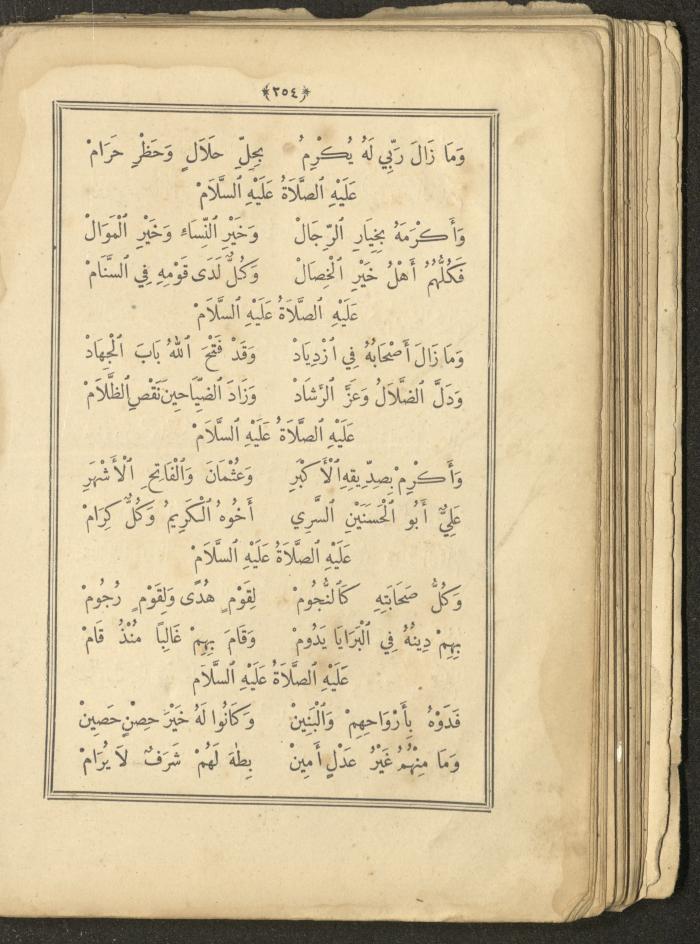 ﴿٢٥٤﴾
وَمَا زَالَ رَبِّي لَهُ يُكْرِمُ بِحِلِّ حَلَالٍ وَحَظْرِ حَرَامْ
عَلَيْهِ الصَّلَاةُ عَلَيْهِ السَّلَامْ
وَأَكْرَمَهُ بِخِيَارِ الرِّجَالْ وَخَيْرِ النِّسَاءِ وَخَيْرِ الْمَوَالْ
فَكُلُّهُمُ أَهْلُ خَيْرِ الْخِصَالْ وَكُلٌّ لَدَى قَوْمِهِ فِي السَّنَامْ
عَلَيْهِ الصَّلَاةُ عَلَيْهِ السَّلَامْ
وَمَا زَالَ أَصْحَابُهُ فِي ازْدِيَادْ وَقَدْ فَتَحَ اللهُ بَابَ الْجِهَادْ
وَدَلَّ الضَّلَالُ وَعَزَّ الرَّشَادْ وَزَادَ الضِّيَا حِينَ نَقْصِ الظَّلَامْ
عَلَيْهِ الصَّلَاةُ عَلَيْهِ السَّلَامْ
وَأَكْرِمْ بِصِدِّيقِهِ الْأَكْبَرِ وَعُثْمَانَ وَالْفَاتِحِ الْأَشْهَرِ
عَلِيٌّ أَبُو الْحَسَنَيْنِ السَّرِي أَخُوهُ الْكَرِيمُ وَكُلٌّ كِرَامْ
عَلَيْهِ الصَّلَاةُ عَلَيْهِ السَّلَامْ
وَكُلُّ صَحَابَتِهِ كَالنُّجُومْ لِقَوْمٍ هُدًى وَلِقَوْمٍ رُجُومْ
بِهِمْ دِينُهُ فِي الْبَرَايَا يَدُومْ وَقَامَ بِهِمْ غَالِبًا مُنْذُ قَامْ
عَلَيْهِ الصَّلَاةُ عَلَيْهِ السَّلَامْ
فَدَوْهُ بِأَرْوَاحِهِمْ وَالْبَنِينْ وَكَانُوا لَهُ خَيْرَ حِصْنٍ حَصِينْ
وَمَا مِنْهُمُ غَيْرُ عَدْلٍ أَمِينْ بِطٰهَ لَهُمْ شَرَفٌ لَا يُرَامْ